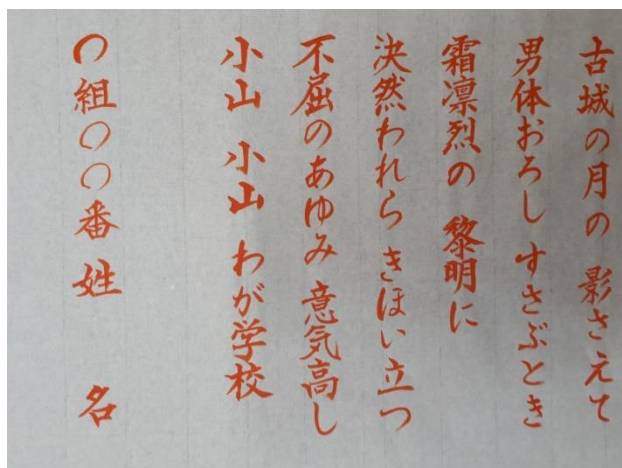 古城の月の 影さえて
男体おろし すさぶとき
霜凛烈の 黎明に
決然われら きほい立つ
不屈のあゆみ 意気高し
小山 小山 わが学校
〇組〇〇番 姓 名